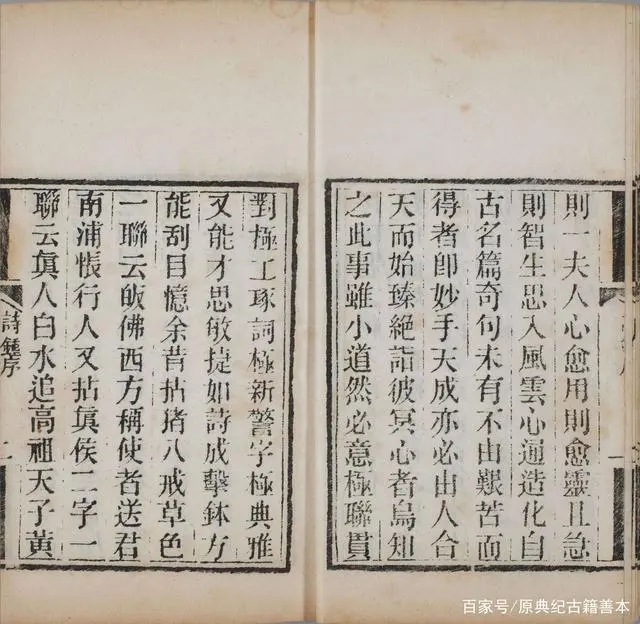 則一夫人心愈用則愈靈且急
則智生思入風雲心通造化自
古名篇奇句未有不由艱苦而
得者卽妙手天成亦必由人合
天而始臻絶詣彼冥心者烏知
之此事雖小道然必意極聯貫
對極工琢詞極新警字極典雅
又能才思敏捷如詩成擊鉢方
能刮目憶余昔拈猪八戒草色
一聯云皈佛西方稱使者送君
南浦悵行人又拈眞侯二字一
聯云眞人白水追高祖天子黃
詩鐘序
二
一
百家号/原典纪古籍善本